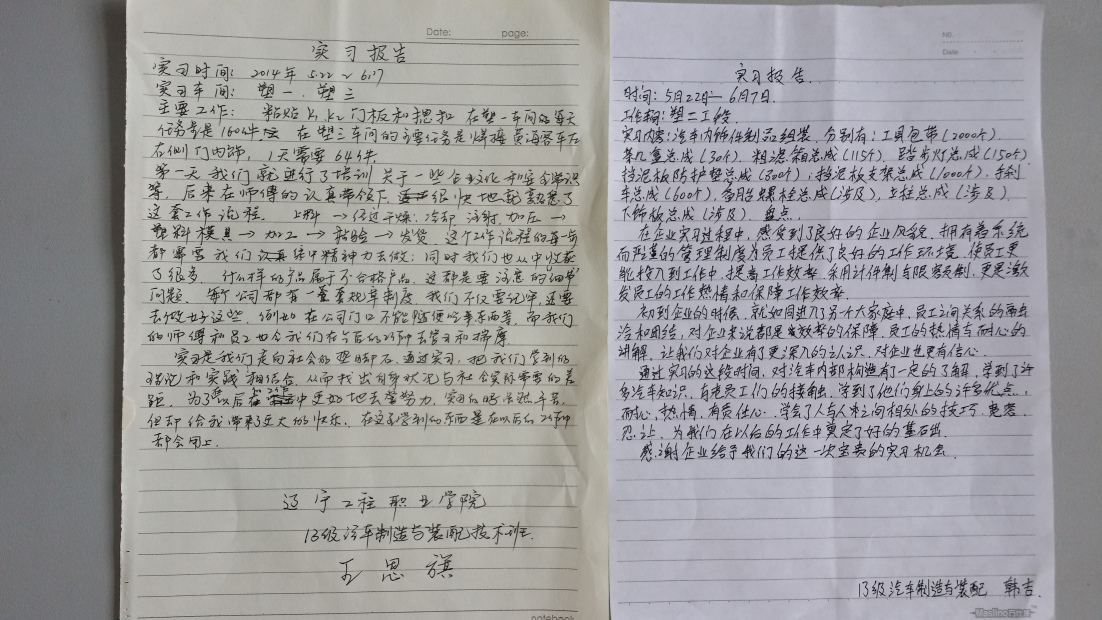 Date: page:
实习报告
实习时间: 2014年 5.22 ~ 6.7
实习车间: 塑一、塑三
主要工作: 粘贴 K1.K2 门板和摁扣 在塑一车间的每天
任务是1600件 在塑三车间的主要任务是焊接 黄海客车左
右侧门内饰, 1天需要64件
第一天我们就进行了培训 关于一些企业文化和安全常识
等, 后来在师傅的认真带领下 很快地就熟悉了
这套工作流程. 上料 → 经过干燥: 冷却 注射.加压 →
塑料模具 → 加工 → 新验 → 发货. 这个工作流程的每一步
都需要我们 集中精神力去做; 同时我们也从中收获
了很多. 什么样的产品属于不合格产品, 这都是要注意的细节
问题. 每个公司都有一套规章制度, 我们不仅要记牢, 还要
去做好这些, 例如 在公司门口不能随便吃零东西等, 而我们
的师傅和员工也令我们在今后的工作中去学习和揣摩
实习是我们走向社会的垫脚石, 通过实习, 把我们学到的
理论和实践相结合, 从而找出自身状况与社会实际需要的差
距, 为了以后在工作中更好地去学努力, 实习的时光虽辛苦,
但却给我带来了更大的快乐. 在这学到的东西是在以后的工作中
都会用上.
辽宁工程职业学院
13级汽车制造与装配技术班
王恩旗
notebook
N0.
Date
实习报告.
时间: 5月22日— 6月7日.
工作部: 塑二工段
实习内容: 汽车内饰件制品组装. 分别有: 工具包带(2000个)
茶几盒总成(30个) 粗滤箱总成(115个) 踏步灯总成(150个)
挡泥板防护垫总成(300个); 挡泥板支架总成(1000个), 手刹
车总成(600个), 备胎螺栓总成(涉及), 立柱总成(涉及)
下饰板总成(涉及) 盘点.
在企业实习过程中, 感受到了良好的企业风貌, 拥有着系统
而严谨的管理制度为员工提供了良好的工作环境, 使员工更
能投入到工作中, 提高工作效率. 采用计件制与限定员制, 更是激
发员工的工作热情和保障工作效率
初到企业的时候, 就如同进入了另个大家庭中. 员工之间关系的融
洽和团结, 对企业来说都是效率的保障. 员工的热情与耐心的
讲解, 让我们对企业有了更深入的认识, 对企业也更有信心.
通过实习的这段时间, 对汽车内部构造有了一定的了解, 学到了许
多汽车知识, 在老员工们的接触, 学到了他们身上的许多优点,
耐心, 热情, 有责任心. 学会了人与人之间相处的技巧, 更是
忍让. 为我们在以后的工作中奠定了好的基石出.
感谢企业给予我们的这一次宝贵的实习机会.
13级汽车制造与装配 韩吉.